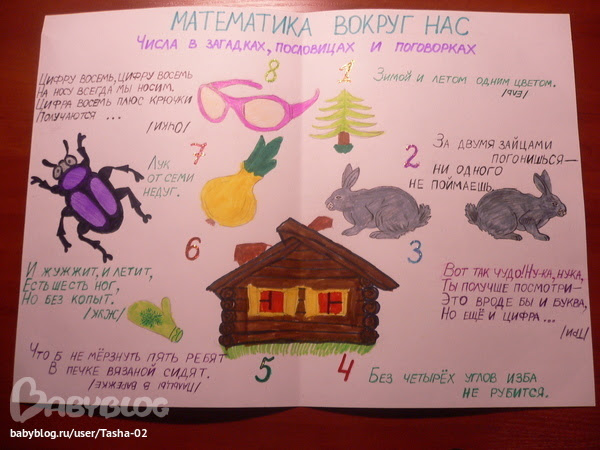 МАТЕМАТИКА ВОКРУГ НАС
ЧИСЛА В ЗАГАДКАХ, ПОСЛОВИЦАХ И ПОГОВОРКАХ
8
ЦИФРУ ВОСЕМЬ, ЦИФРУ ВОСЕМЬ
НА НОСУ ВСЕГДА МЫ НОСИМ.
ЦИФРА ВОСЕМЬ ПЛЮС КРЮЧКИ
ПОЛУЧАЮТСЯ ...
/ОЧКИ/
1
ЗИМОЙ И ЛЕТОМ ОДНИМ ЦВЕТОМ.
/ЕЛЬ/
7
ЛУК
ОТ СЕМИ
НЕДУГ.
2
ЗА ДВУМЯ ЗАЙЦАМИ
ПОГОНИШЬСЯ —
НИ ОДНОГО
НЕ ПОЙМАЕШЬ.
6
И ЖУЖЖИТ, И ЛЕТИТ,
ЕСТЬ ШЕСТЬ НОГ,
НО БЕЗ КОПЫТ.
/ЖУК/
3
ВОТ ТАК ЧУДО! НУ-КА, НУКА,
ТЫ ПОЛУЧШЕ ПОСМОТРИ —
ЭТО ВРОДЕ БЫ И БУКВА,
НО ЕЩЁ И ЦИФРА ...
/ТРИ/
5
ЧТО Б НЕ МЁРЗНУТЬ ПЯТЬ РЕБЯТ
В ПЕЧКЕ ВЯЗАНОЙ СИДЯТ.
/ПАЛЬЦЫ В ВАРЕЖКЕ/
4
БЕЗ ЧЕТЫРЁХ УГЛОВ ИЗБА
НЕ РУБИТСЯ.
BABYBLOG
babyblog.ru/user/Tasha-02